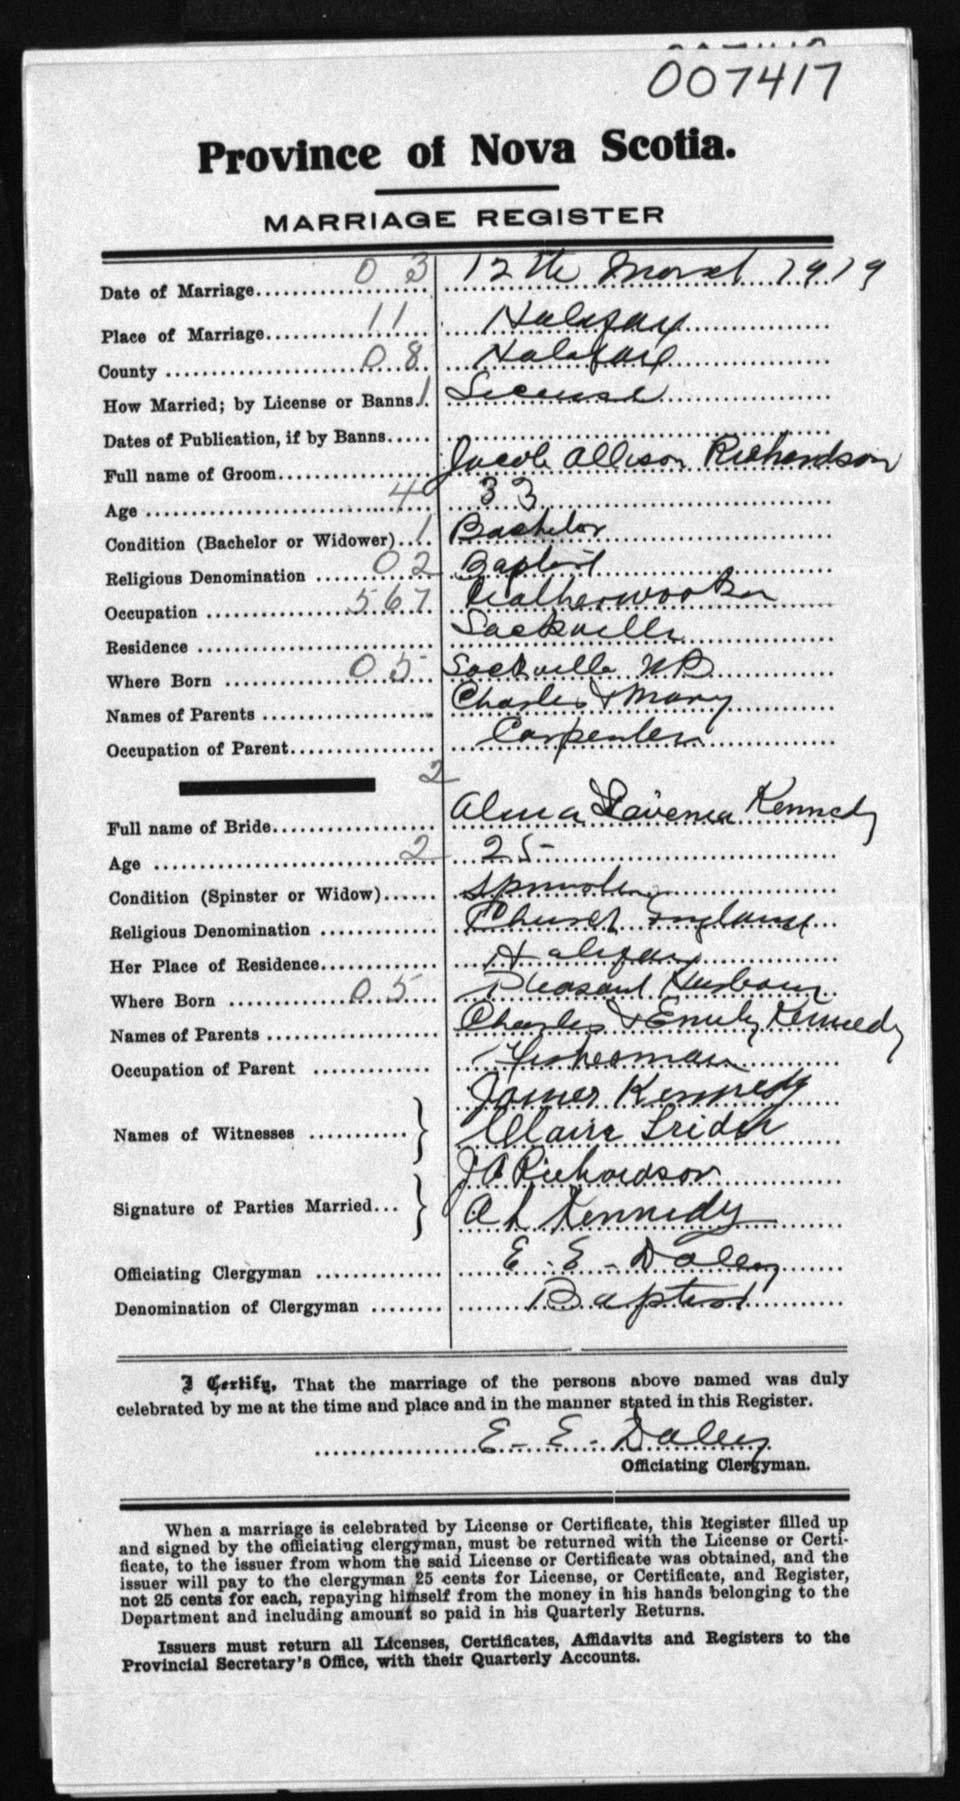 007417
Province of Nova Scotia.
MARRIAGE REGISTER
Date of Marriage 03 12th March 1919
Place of Marriage 11 Halifax
County 08 Halifax
How Married; by License or Banns 1 License
Dates of Publication, if by Banns
Full name of Groom Jacob Allison Richardson
Age 4 33
Condition (Bachelor or Widower) 1 Bachelor
Religious Denomination 02 Baptist
Occupation 567 Leatherworker
Residence Sackville
Where Born 05 Sackville NB
Names of Parents Charles & Mary
Occupation of Parent Carpenter
2
Full name of Bride Alma Lavenia Kennedy
Age 2 25
Condition (Spinster or Widow) Spinster
Religious Denomination Church England
Her Place of Residence Halifax
Where Born 05 Pleasant Harbour
Names of Parents Charles & Emily Kennedy
Occupation of Parent Fisherman
James Kennedy
Names of Witnesses Claire
J A Richardson
Signature of Parties Married A L Kennedy
Officiating Clergyman E. E. Daley
Denomination of Clergyman Baptist
I Certify, That the marriage of the persons above named was duly
celebrated by me at the time and place and in the manner stated in this Register.
E. E. Daley
Officiating Clergyman.
When a marriage is celebrated by License or Certificate, this Register filled up
and signed by the officiating clergyman, must be returned with the License or Certi-
ficate, to the issuer from whom the said License or Certificate was obtained, and the
issuer will pay to the clergyman 25 cents for License, or Certificate, and Register,
not 25 cents for each, repaying himself from the money in his hands belonging to the
Department and including amount so paid in his Quarterly Returns.
Issuers must return all Licenses, Certificates, Affidavits and Registers to the
Provincial Secretary's Office, with their Quarterly Accounts.